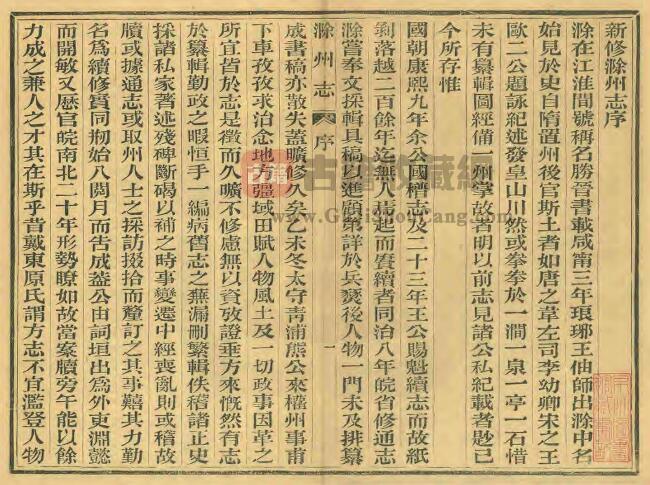 新修滁州志序
滁在江淮間號稱名勝晉書載咸甯三年琅琊王伷師出滁中名
始見於史自隋置州後官斯土者如唐之韋左司李幼卿宋之王
歐二公題詠紀述發皇山川然或拳拳於一澗一泉一亭一石惜
未有纂輯圖經備一州掌故者明以前志見諸公私紀載者尠已
今所存惟
國朝康熙九年余公國𣚴志及二十三年王公賜魁續志而故紙
剝落越二百餘年迄無人焉起而賡續者同治八年皖省修通志
滁嘗奉文採輯具稿以進顧第詳於兵燹後人物一門未及排纂
滁州志 序 一
成書稿亦散失蓋曠修久矣乙未冬太守青浦熊公來權州事甫
下車孜孜求治念地方疆域田賦人物風土及一切政事因革之
所宜皆於志是徵而久曠不修慮無以資攷證垂方來慨然有志
於纂輯勤政之暇恒手一編病舊志之蕪漏刪繁輯佚稽諸正史
採諸私家著述殘碑斷碣以補之時事變遷中經喪亂則或稽故
牘或據通志或取州人士之採訪掇拾而釐訂之其事囏其力勤
名為續修實同剏始八閱月而告成蓋公由詞垣出為外吏淵懿
而開敏又歷官皖南北二十年形勢瞭如故當案牘旁午能以餘
力成之兼人之才其在斯乎昔戴東原氏謂方志不宜濫登人物
古書收藏網